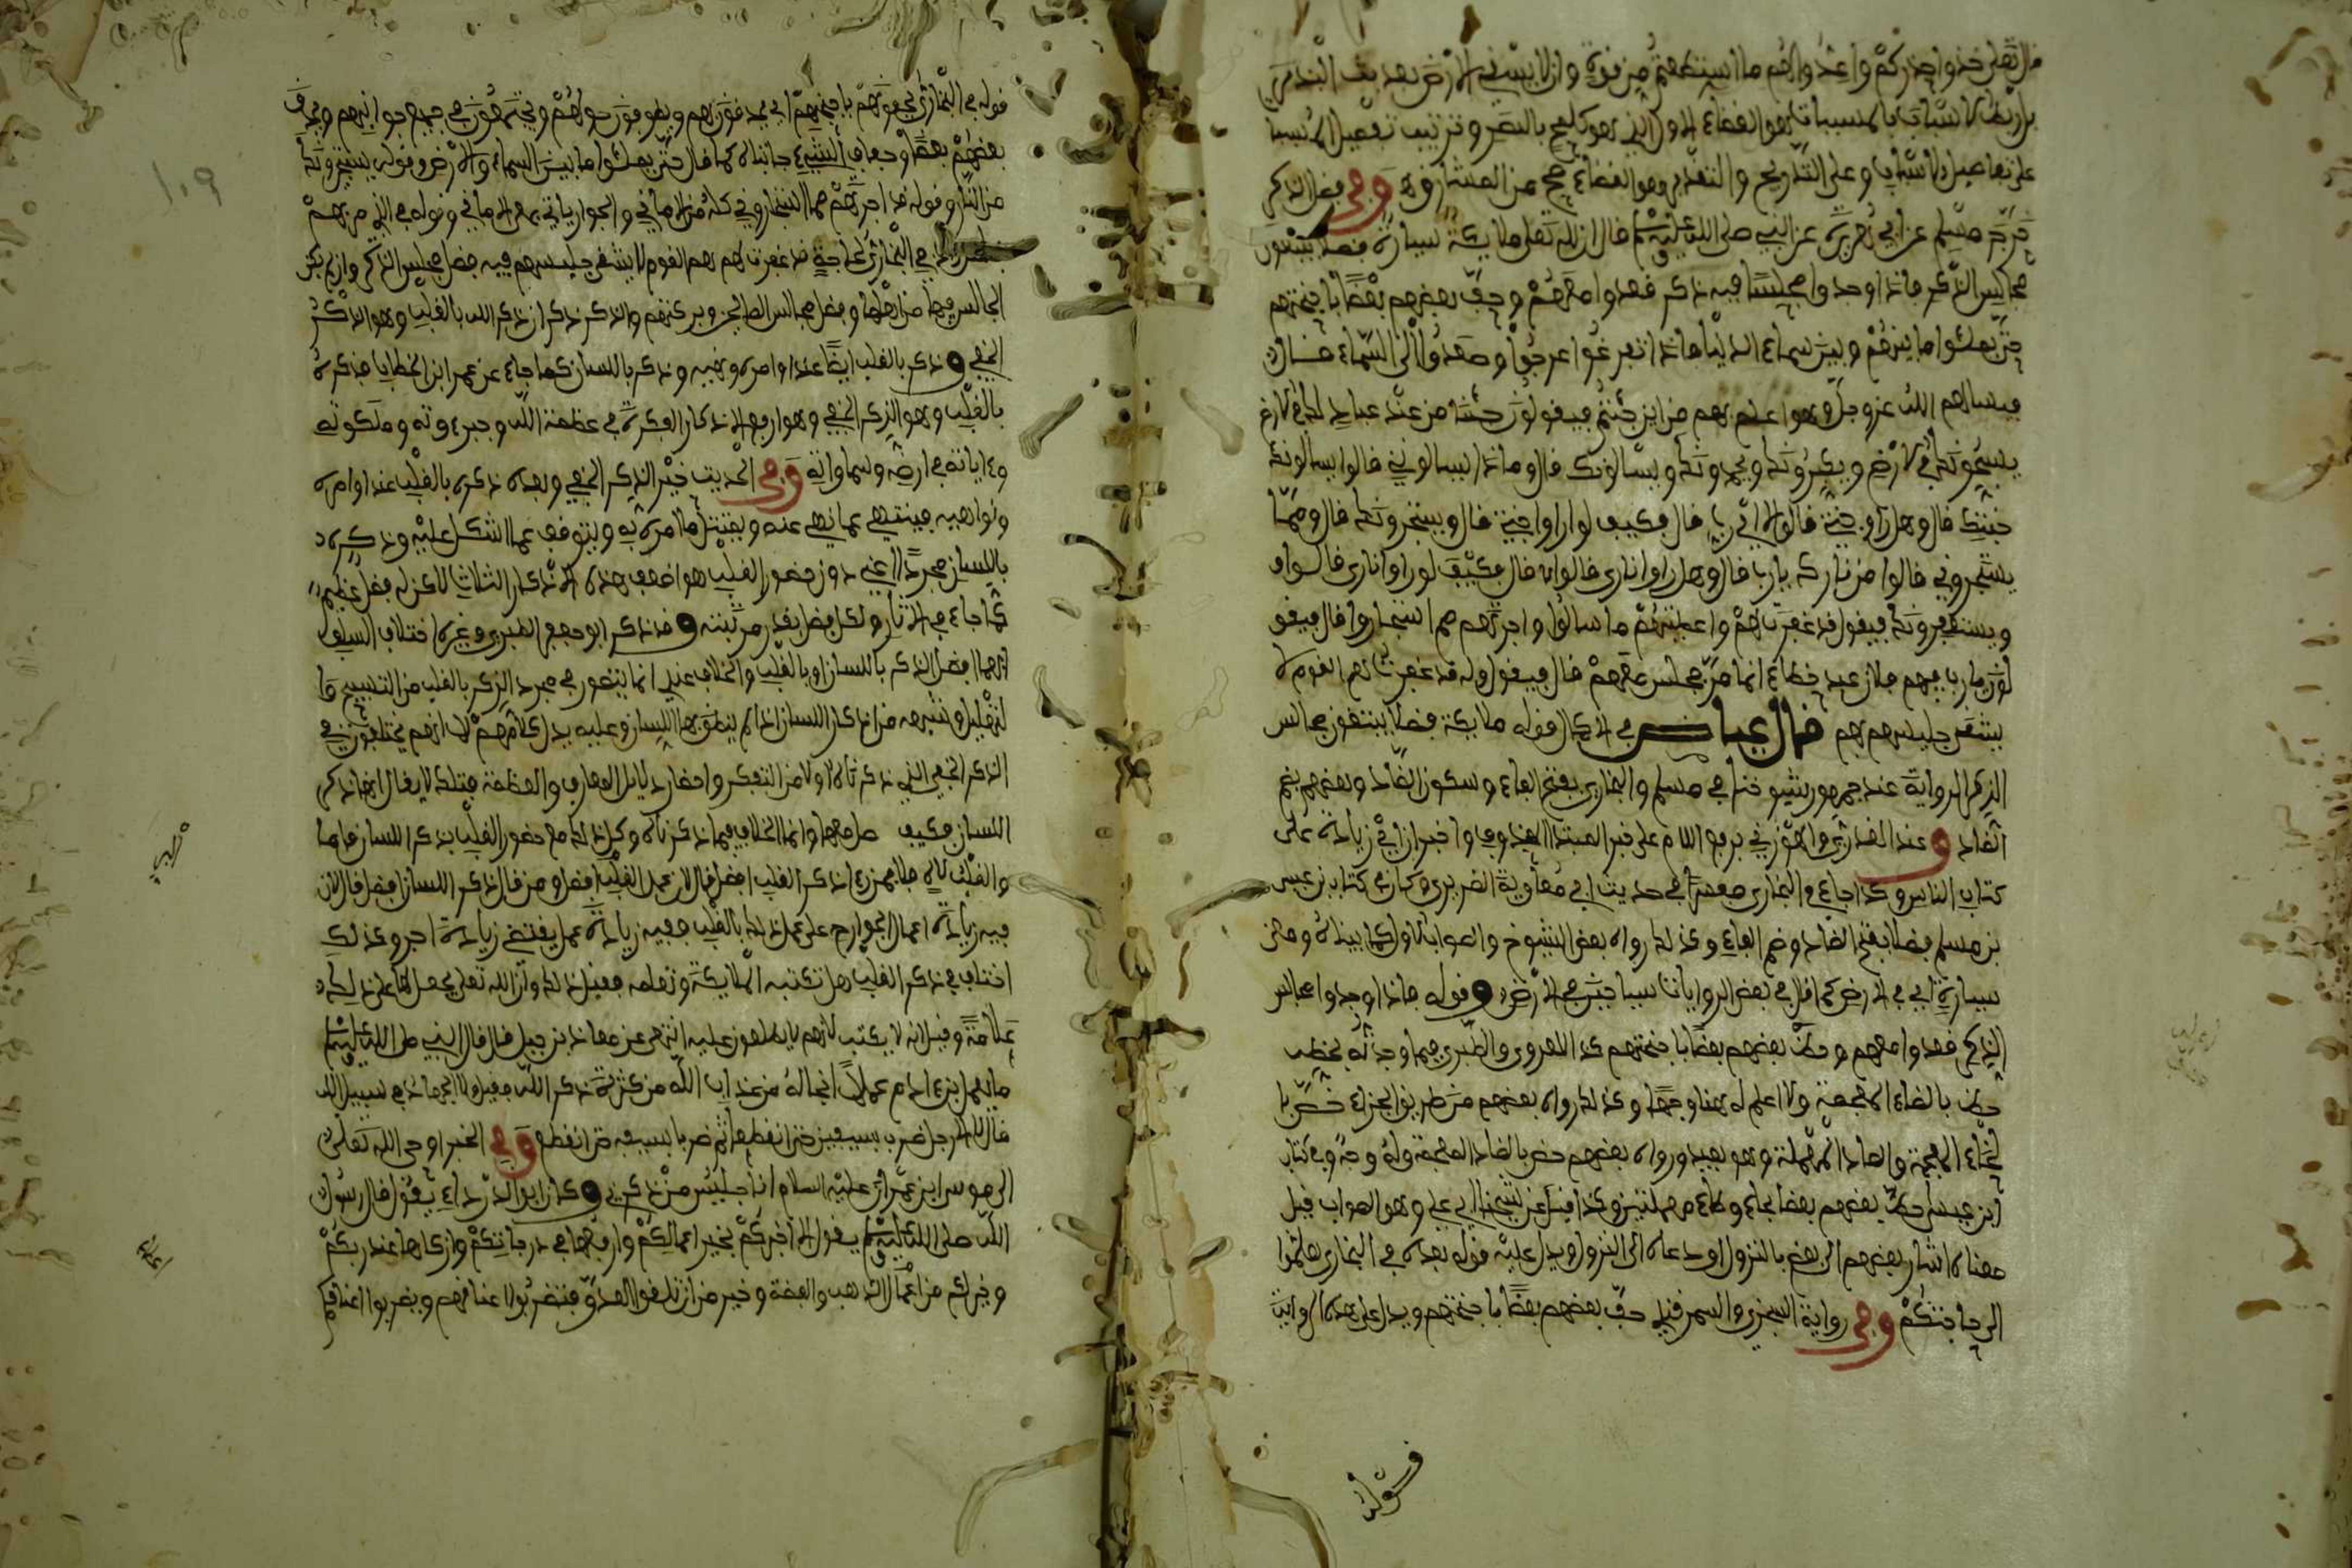 قال تعلى خذوا حذركم واعدوا لهم ما استطعتم من قوة وان لا ينسى في الارض بعد بث البذر في
بل ربط الاسباب بالمسببات هو القضاء الاول الذي هو كلمح بالبصر وترتيب تفصيل المسببا
على تفاصيل الاسباب وعلى التدريج والتقدير وهو القضاء صح من المشارق ه وفي فضل الذكر
خرج مسلم عن ابي هريرة عن النبي صلى الله عليه وسلم قال ان لله تعلى ملايكة سيارة فضلا يبتغون
مجاليس الذكر فاذا وجدوا مجلسا فيه ذكر قعدوا معهم وحف بعضهم بعضا باجنحتهم
حتى يملئوا ما بينهم وبين سماء الدنيا فاذا تفرغوا عرجوا وصعدوا الى السماء قال
فيسالهم الله عز وجل وهو اعلم بهم من اين جئتم فيقولون جئنا من عند عباد لك في الارض
يسبحونك في الارض ويكبرونك ويحمدونك ويسالونك قال وما ذا يسالوني قالوا يسالونك
جنتك قال وهل راوا جنتي قالوا لا اي رب قال فكيف لو راوا جنتي قال ويستجيرونك قال ومما
يستجيروني قالوا من نارك يا ربنا قال وهل راوا ناري قالوا لا قال فكيف لو راوا ناري قالوا
ويستغفرونك فيقول قد غفرت لهم واعطيتهم ما سالوا واجرتهم مما استجاروا قال فيقو
لون يا رب فيهم فلان عبد خطاء انما مر فجلس معهم قال فيقول وله قد غفرت هم القوم لا
يشقى جليسهم بهم قال عياض في الاكمال قوله ملايكة فضلا يبتغون مجالس
الذكر الرواية عند جمهور شيوخنا في مسلم والبخاري بفتح الفاء وسكون الضاد وبعضهم بضم
الضاد وعند العذري والهوزني برفع اللام على خبر المبتدا المحذوف واخبر ان زيادة على
كتاب الناس وكذا جاء في البخاري مفسرا في حديث ابي معاوية الضرير وكان في كتاب بن عيسى
بن مسلم فضلا بفتح الضاد وضم الفاء وكذلك رواه بعض الشيوخ والصواب الاول كما بيناه ومعنى
سيارة اي في الارض كما قال في بعض الروايات سياحين في الارض وقوله فاذا وجدوا مجالس
الذكر قعدوا معهم وحظ بعضهم بعضا باجنحتهم كذا للهروي والطبري فيما وجدته بخطي
حظ بالظاء المعجمة ولا اعلم له هنا وجها وكذلك رواه بعضهم من طريق ابن الحذاء خص با
لخاء المعجمة والصاد المهملة وهو بعيد ورواه بعضهم حض بالضاد المعجمة وله وجه وفي كتاب
ابن عيسى حط بعضهم بعضا بحاء وطاء مهملتين وكذا قيل عن شيخنا ابي علي وهو الصواب قيل
معناه اشار بعضهم الى بعض بالنزول او دعاه الى النزول ويدل عليه قوله بعده في البخاري هلموا
الى حاجتكم وفي رواية السجزي والسمرقندي حف بعضهم بعضا باجنحتهم ويدل على هذه الرواية
قوله
قوله في البخاري يحفونهم باجنحتهم اي يحدقون بهم ويطوفون حولهم ويجتمعون في جميع جوانبهم ويحف
بعضهم بعضا وحفاف الشيء جانباه كما قال حتى يملئوا ما بين السماء والارض وقوله يستجيرونك
من النار وقوله قد اجرتهم مما استجاروني كله من الاماني والجوار ياتي بمعنى الاماني وقوله في الذي مر بهم
في البخاري لحاجة قد غفرت لهم هم القوم لا يشقى جليسهم فيه فضل مجلس الذكر وان لم يكن
الجالس فيها من اهلها وفضل مجالس الصالحين وبركتهم والذكر ذكران ذكر الله بالقلب وهو الذكر
الخفي وذكر بالقلب ايضا عند اوامره ونهيه وذكر باللسان كما جاء عن عمر ابن الخطاب فذكره
بالقلب وهو الذكر الخفي وهو ارفع الاذكار الفكرة في عظمة الله وجبروته وملكوته
وءاياته في ارضه وسماواته وفي الحديث خير الذكر الخفي وبعده ذكره بالقلب عند اوامره
ونواهيه فينتهي عما نهي عنه ويمتثل ما امر به ويتوقف عما اشكل عليه وذكره
باللسان مجردا اعني دون حضور القلب هو اضعف هذه الاذكار الثلاث لاكن له فضل عظيم
كما جاء في الاثار ولكل فضل بقدر مرتبته وقد ذكر ابو جعفر الطبري وغيره اختلاف السلف
ايهما افضل الذكر باللسان او بالقلب والخلاف عندي انما يتصور في مجرد الذكر بالقلب من التسبيح وا
لتهليل وشبهه من اذكار اللسان اذا لم ينطق بها اللسان وعليه يدل كلامهم لا انهم يختلفون في
الذكر الخفي الذي ذكرناه اولا من التفكر واحضار دلايل المعارف والعظمة فتلك لا يقال فيها ذكر
اللسان فكيف فاضلها وانما الخلاف فيما ذكرناه وكل ذلك مع حضور القلب بذكر اللسان فاما
والقلب لاه فلا فمن راى ذكر القلب افضل قال لان عمل القلب افضل ومن قال ذكر اللسان افضل قال لان
فيه زيادة اعمال الجوارح على عمل ذلك بالقلب ففيه زيادة عمل يقتضي زيادة اجر وكذلك
اختلف في ذكر القلب هل تكتبه الملايكة وتعلمه فقيل ذلك وان الله تعلى يجعل لها على ذلك
علامة وقيل انه لا يكتب لانهم لا يطلعون عليه انتهى عن معاذ بن جبل قال قال النبي صلى الله عليه وسلم
ما عمل ابن ءادم عملا انجا له من عذاب الله من كثرة ذكر الله فقيل ولا الجهاد في سبيل الله
قال لا الا رجل ضرب بسيفه حتى انقطع ثم ضرب بسيفه حتى انقطع وفي الخبر اوحى الله تعلى
الى موسى ابن عمران عليه السلام انا جليس من ذكرني وكان ابو الدرداء يقول قال رسول
الله صلى الله عليه وسلم يقول الا اخبركم بخير اعمالكم وارفعها في درجاتكم وازكاها عند ربكم
وخير لكم من اعمال الذهب والفضة وخير من ان تلقوا العدو فتضربوا اعناقهم ويضربوا اعناقكم
١٠٩